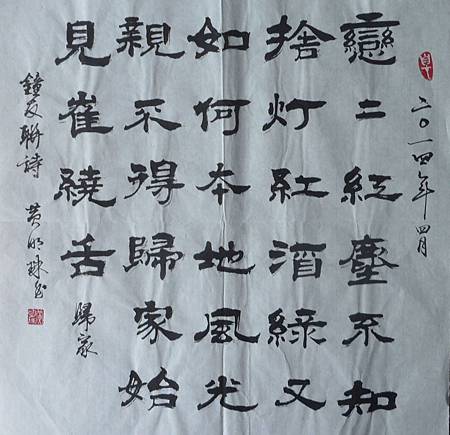 二〇一四年四月
戀二紅塵不知
捨灯紅酒綠又
如何本地風光
親不得歸家始
見崔繞舌
歸家
鐘友聯詩 黃明珠书